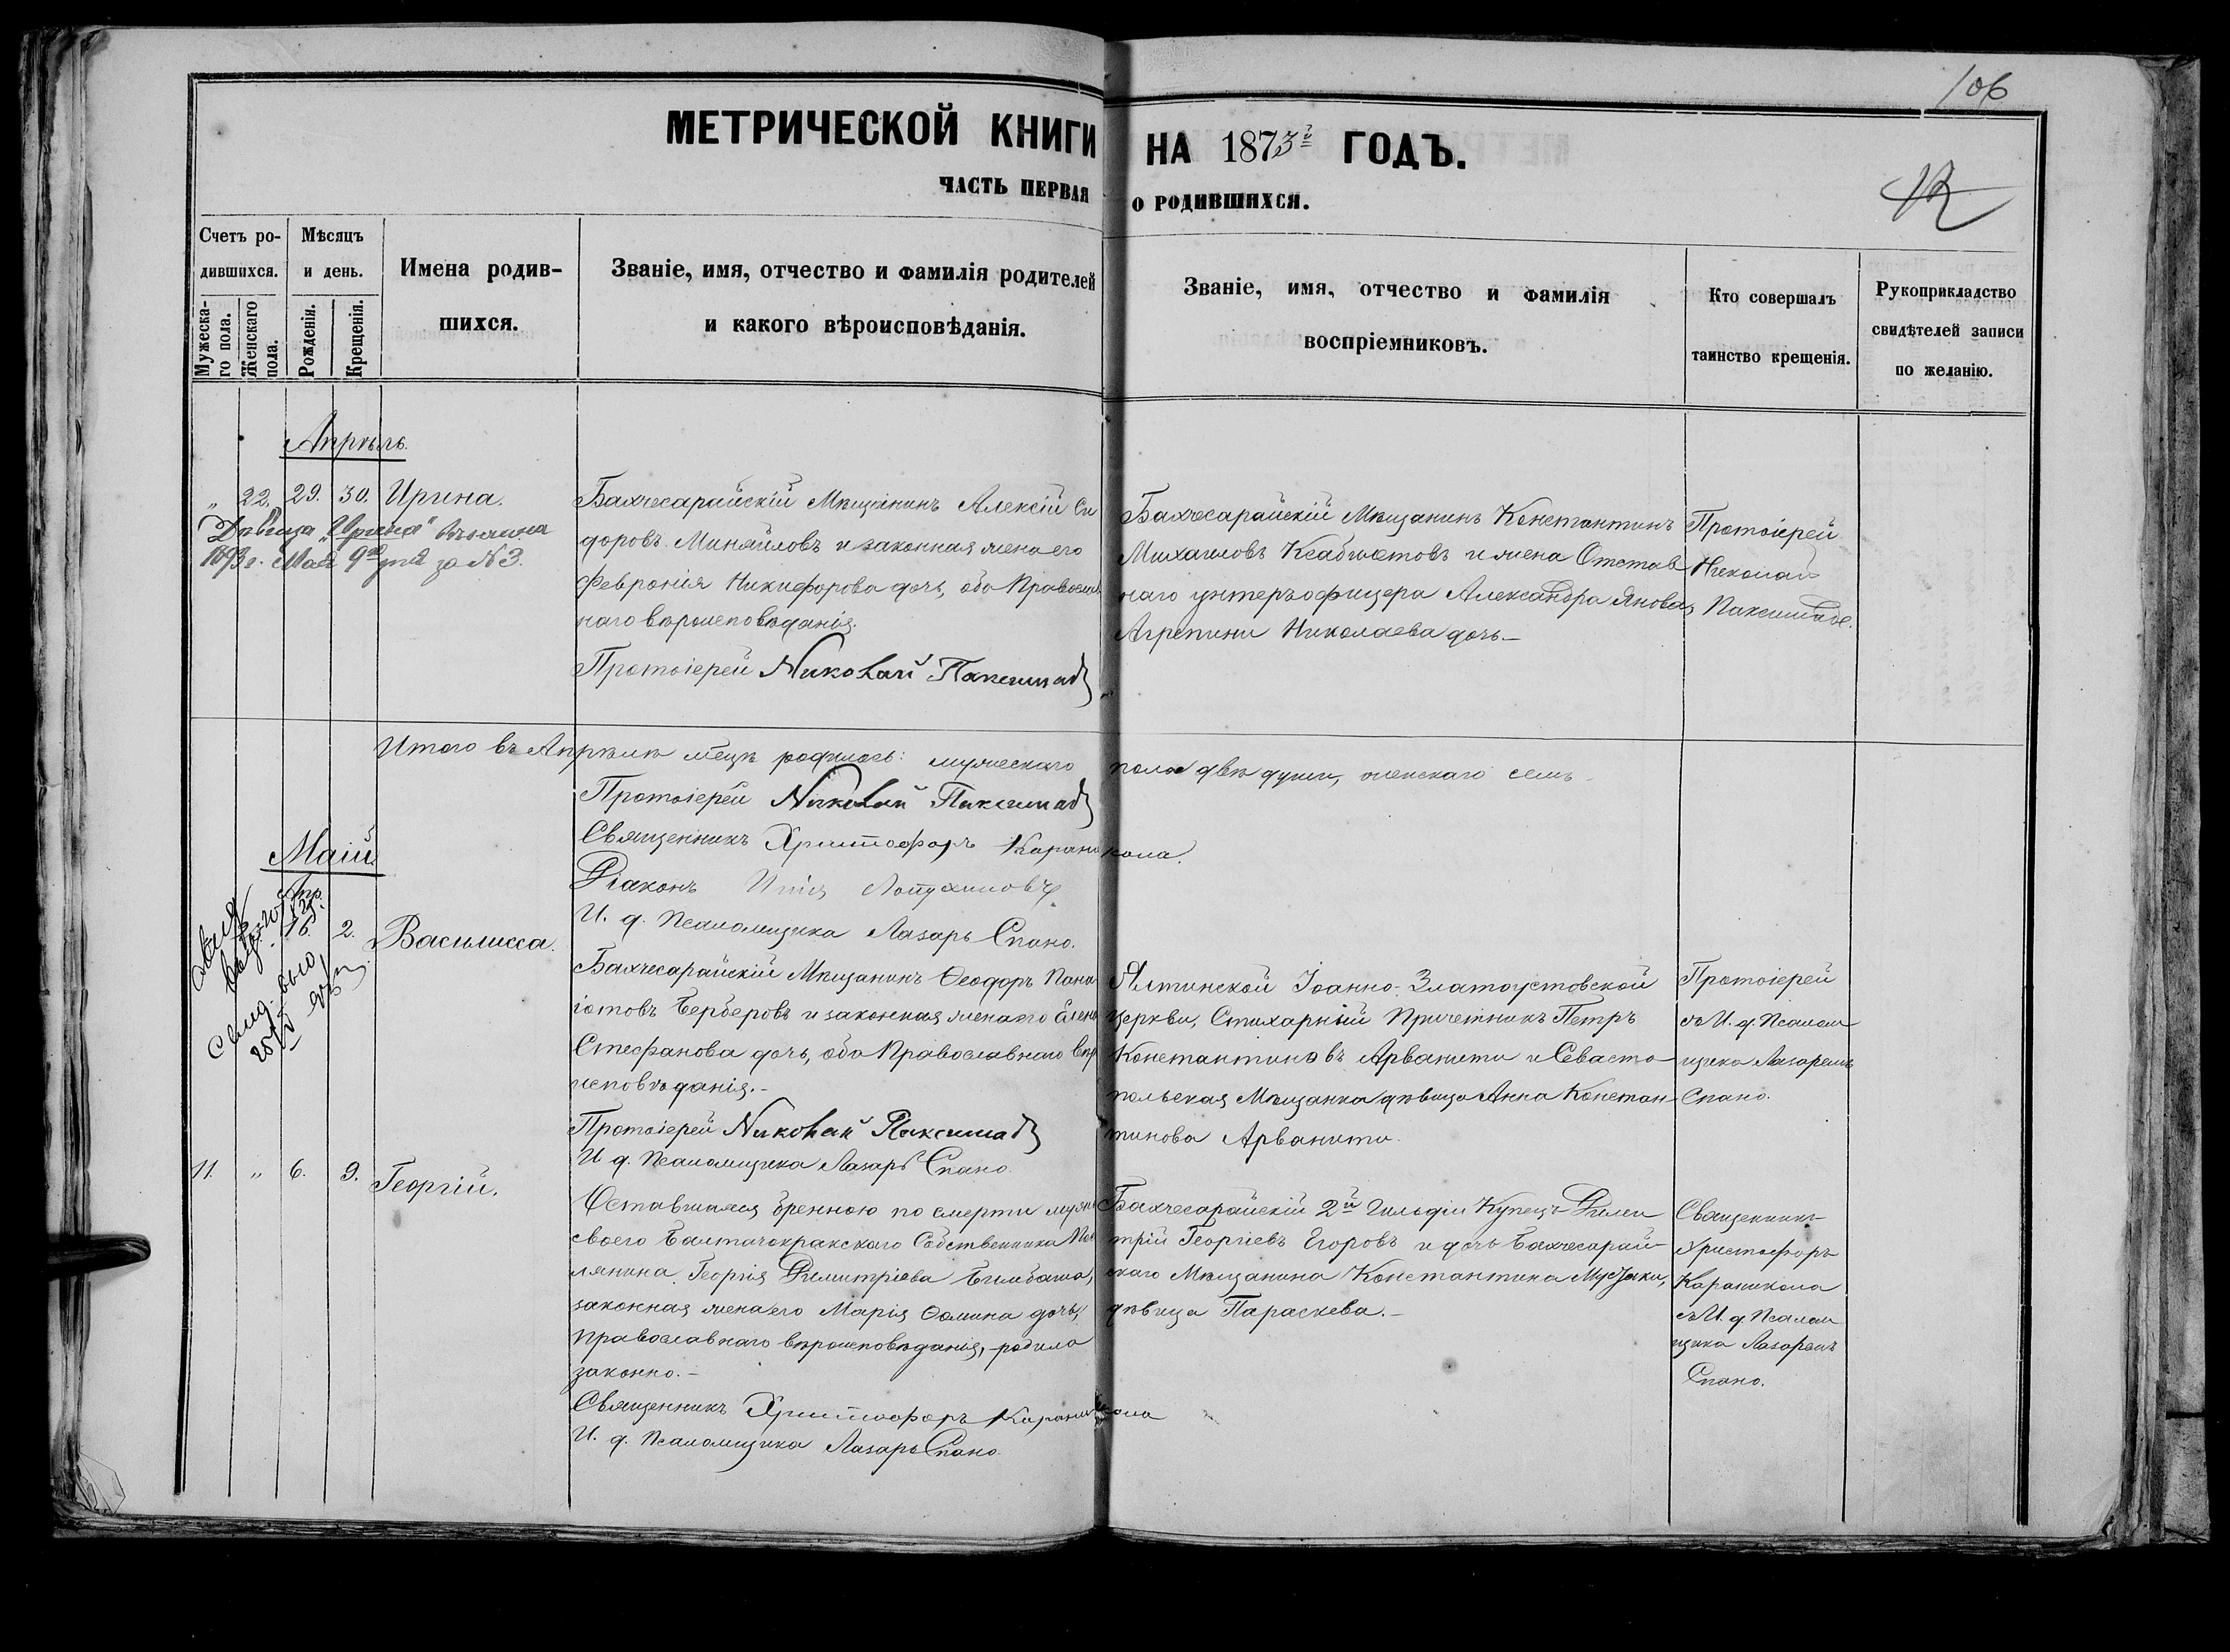 106
МЕТРИЧЕСКОЙ КНИГИ НА 1873й ГОДЪ.
ЧАСТЬ ПЕРВАЯ О РОДИВШИХСЯ.
Счетъ ро-
дившихся.
Мужеска-
го пола.
Женскаго
пола.
Мѣсяцъ
и день.
Рожденія.
Крещенія.
Имена родив-
шихся.
Званіе, имя, отчество и фамилія родителей
и какого вѣроисповѣданія.
Званіе, имя, отчество и фамилія
воспріемниковъ.
Кто совершалъ
таинство крещенія.
Рукоприкладство
свидѣтелей записи
по желанію.
Апрѣль.
„ 22. 29. 30. Ирина.
Дѣвица „Ирина" вѣнчана
1893 г. Мая 9го дня за №3.
Бахчесарайскій Мѣщанинъ Алексій Си
доровъ Миняйловъ и законная жена его
Февронія Никифорова дочь, оба Православ
наго вѣроисповѣданія.
Протоіерей Николай Паксимад
Бахчесарайскій Мѣщанинъ Константинъ
Михаиловъ и жена Отстав
наго унтеръ офицера Александра Янова
Агрепини Николаева дочь.
Протоіерей
Николай
Паксимаде.
Итого въ Апрѣлѣ мѣцѣ родилось: мужескаго пола двѣ души, женскаго семь.
Протоіерей Николай Паксимад
Священникъ Христофоръ Караникола.
Діаконъ Илія Лопухиновъ
И. д. Псаломщика Лазарь Спано.
Маій
2. Василисса.
Бахчесарайскій Мѣщанинъ Ѳеодоръ Пана
іотовъ Берберовъ и законная жена его Елена
Стефанова дочь, оба Православнаго вѣр
исповѣданія.-
Протоіерей Николай Паксимад
И д. Псаломщика Лазарь Спано.
Ялтинской Іоанно-Златоустовской
церкви, Стихарный Причетникъ Петръ
Константиновъ Арванити и Севасто-
польская Мѣщанка дѣвица Анна Констан
тинова Арванити.
Протоіерей
съ И. д. Псалом
щика Лазаремъ
Спано.
11. „ 6. 9. Георгій.
Оставшаяся бренною по смерти мужа
своего Балтачокракскаго Собственника По
лянина Георгія Димитріева Бимбаша,
законная жена его Марія Ѳомина дочь,
Православнаго вѣроисповѣданія, родила
законно.-
Священникъ Христофоръ Караникола
И. д. Псаломщика Лазарь Спано.
Бахчесарайскій 2й Гильдіи Купецъ Дими
трій Георгіевъ Егоровъ и дочь Бахчесарай-
скаго Мѣщанина Константина
дѣвица Параскева.-
Священникъ
Христофоръ
Караникола
съ И. д. Псалом
щика Лазаремъ
Спано.